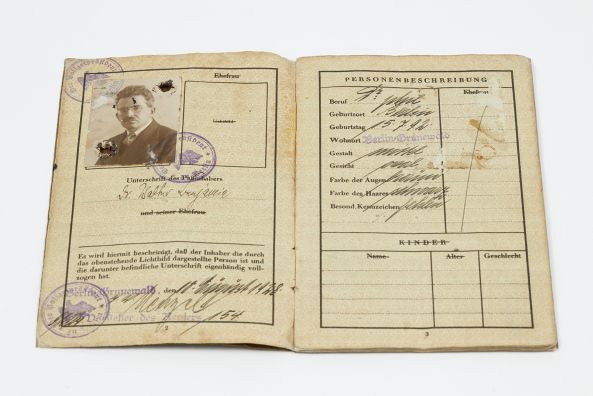 Ehefrau
Lichtbild
Unterschrift des Paßinhabers
Dr. Walter Benjamin
und seiner Ehefrau
Es wird hiermit bescheinigt, daß der Inhaber die durch
das obenstehende Lichtbild dargestellte Person ist und
die darunter befindliche Unterschrift eigenhändig voll-
zogen hat.
Berlin-Grunewald, den 10. August 1928
Vorsteher des Reviers 154
PERSONENBESCHREIBUNG
Ehefrau
Beruf Dr. phil.
Geburtsort Berlin
Geburtstag 15.7.92
Wohnort Berlin-Grunewald
Gestalt
Gesicht oval
Farbe der Augen braun
Farbe des Haares schwarz
Besond. Kennzeichen fehlen
KINDER
Name Alter Geschlecht
3